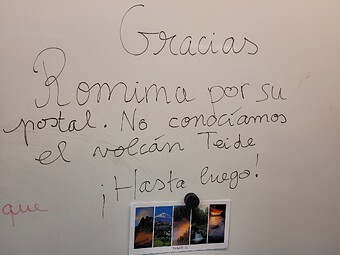 Gracias
Romima por su
postal. No conocíamos
el volcán Teide
¡Hasta luego!
que